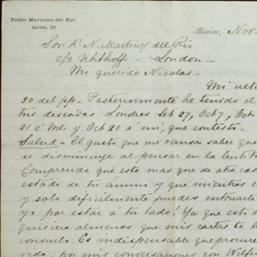 Pablo Martinez del Rio
Mexico, Nov.
Sor Dn. N. Martinez del Rio
c/o Uhthoff - London -
Mi querido Nicolas -
Mi
30 del pp - Posteriormente he tenido el
tus deseadas Londres 27, Oct 7, Oct
21 á Me. y Oct 20 á mi, que contesto -
Salud - El gusto que me causa saber que
se disminuye al pensar en la
Comprendo que este mas que de otra
estado de tu ánimo y que mientras
y solo dificilmente puedes entonarte
yo por estar á tu lado! Ya que esto
quisiera almenos que mis cartas te
consuelo. Es indispensable que procure
por mis conversaciones con